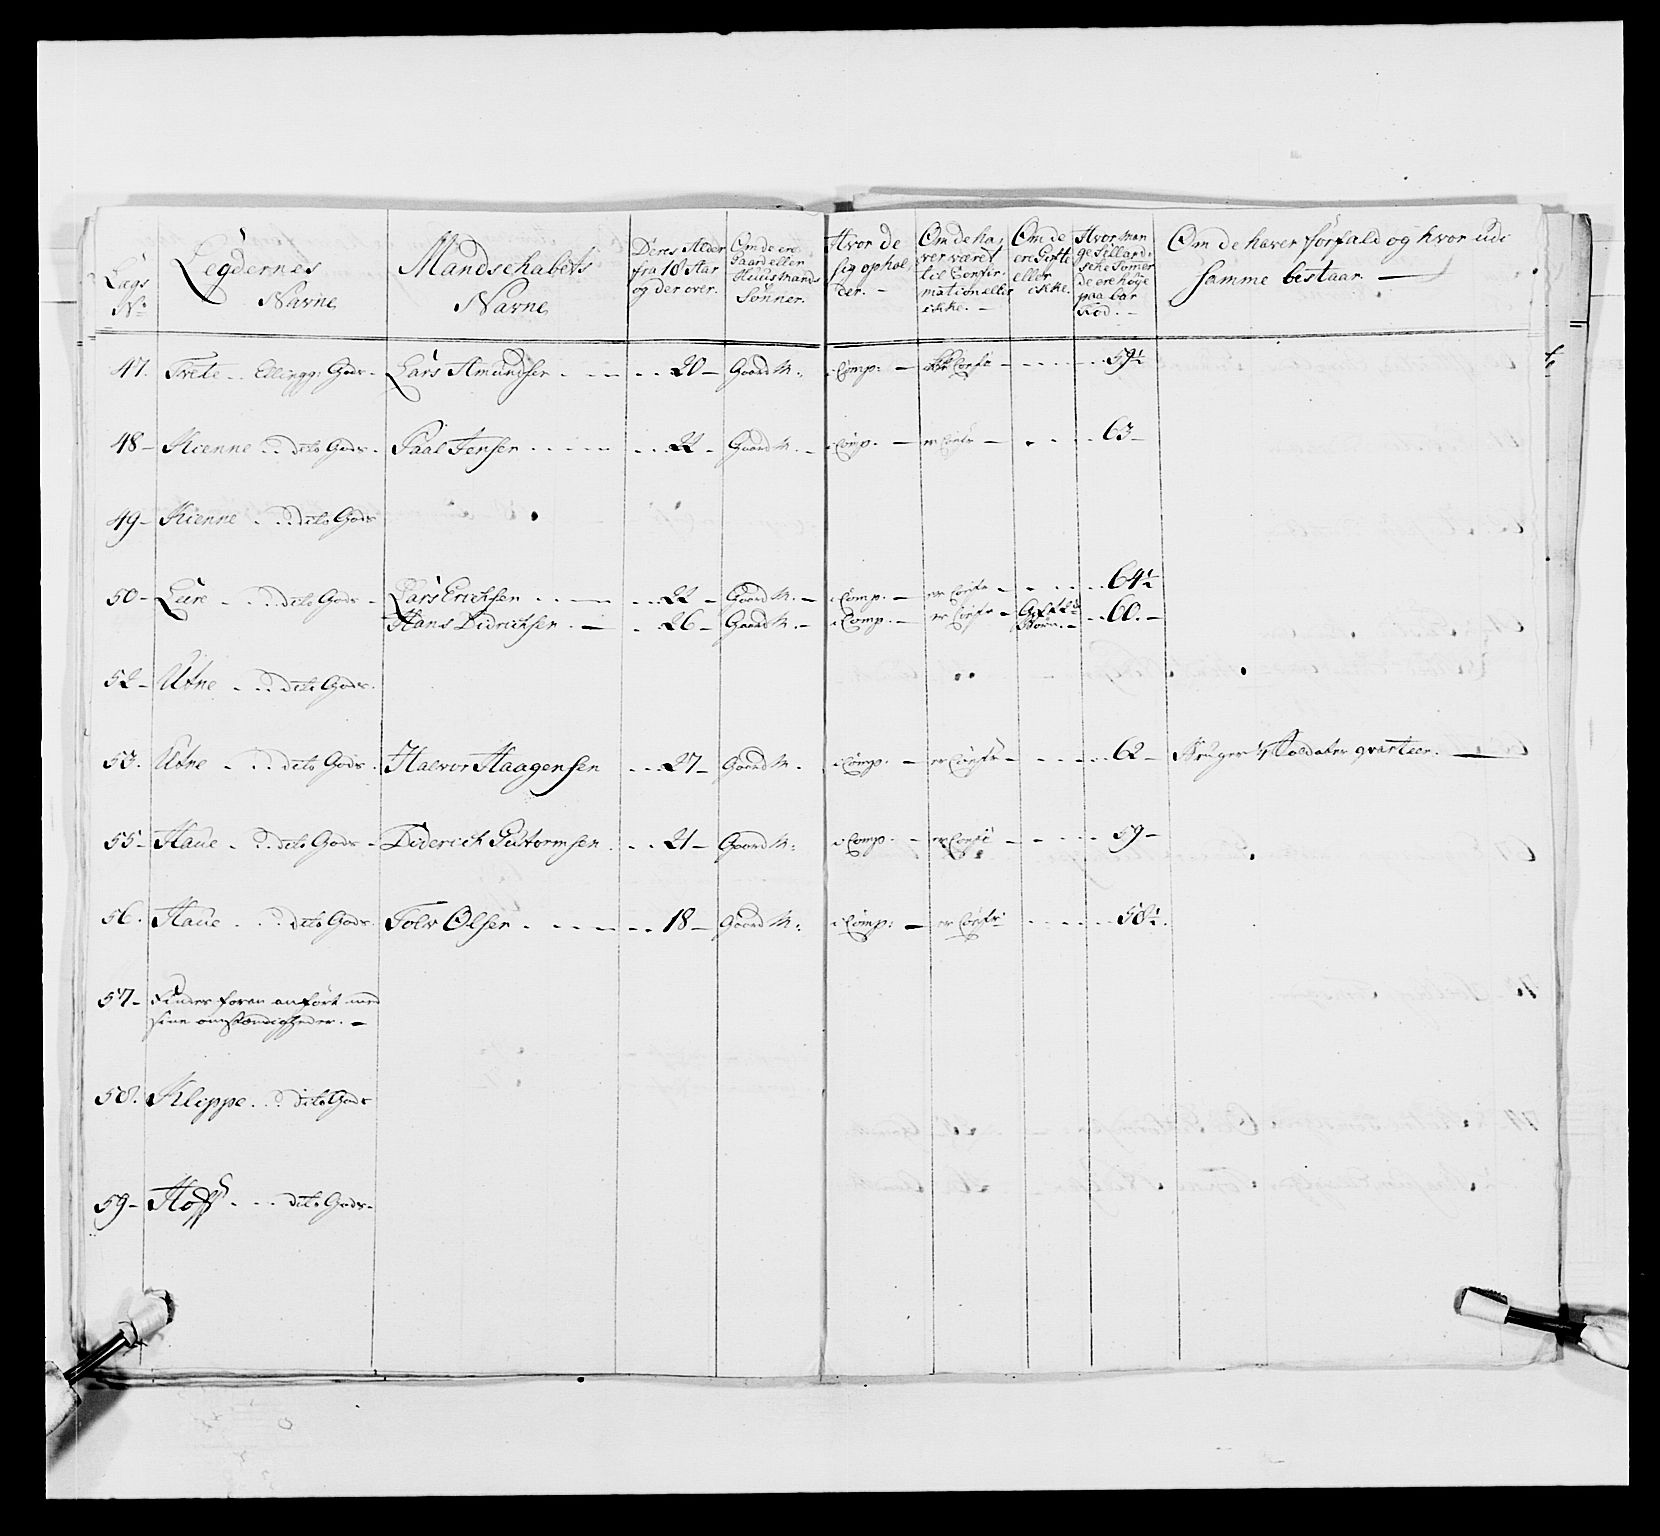 Lægs No
Legdernes Navne
Mandschabets Navne
Deres Alder fra 18 Aar og der over.
Om de ere Gaard eller Huusmands Sønner.
Hvor de sig ophol der. -
Om de ha, ver været til Confir mation eller ikke. -
Om de ere Gifte eller ikke.
Hvor man ge Sellandi sche Tomer de ere høye paa bar Fod. -
Om de haver forfald og hvor udi samme bestaar. -
47. Tvete .. Ellingg: Gods - Lars Amundsen . - - .. 20 - Gaard M: i Comp: - Confr - - - - 59½
48 - Kienne .. dito Gods. Paal Jensen . . . - - . . . 22 - Gaard M. - i Comp. - er Confr - . - . . 63 -
49 - Kienne . . . dito Gods
50 - Eure - . . . dito Gods - Lars Erichsen . . . - . . . 22 - Gaard M. - i Comp. - er Confr - . - . . 64½
Hans Didrichsen . - . 26 - Gaard M. - i Comp. - er Confr - Gift & Børn. - . . 60. -
52 - Utne - . . . dito Gods.
53. Utne - . . . dito Gods. Halvor Haagensen . . . 27 - Gaard M. i Comp. - er Confr - . . . . 62 - Bruger ¼ Soldater qvarteer. -
55 - Haue - . . dito Gods - Diderich Gutormsen . . . 21 - Gaard M: i Comp - er Confr - - - . . 59 -
56. Haue . . . dito Gods. Tolv Olsen . - - - . . 18 - Gaard M: i Comp: - er Confr . . - . . 58½.
57 - Findes foran anført med
sine omstændigheder. -
58. Klippe . . . dito Gods
59 - Hoff . . . dito Gods -